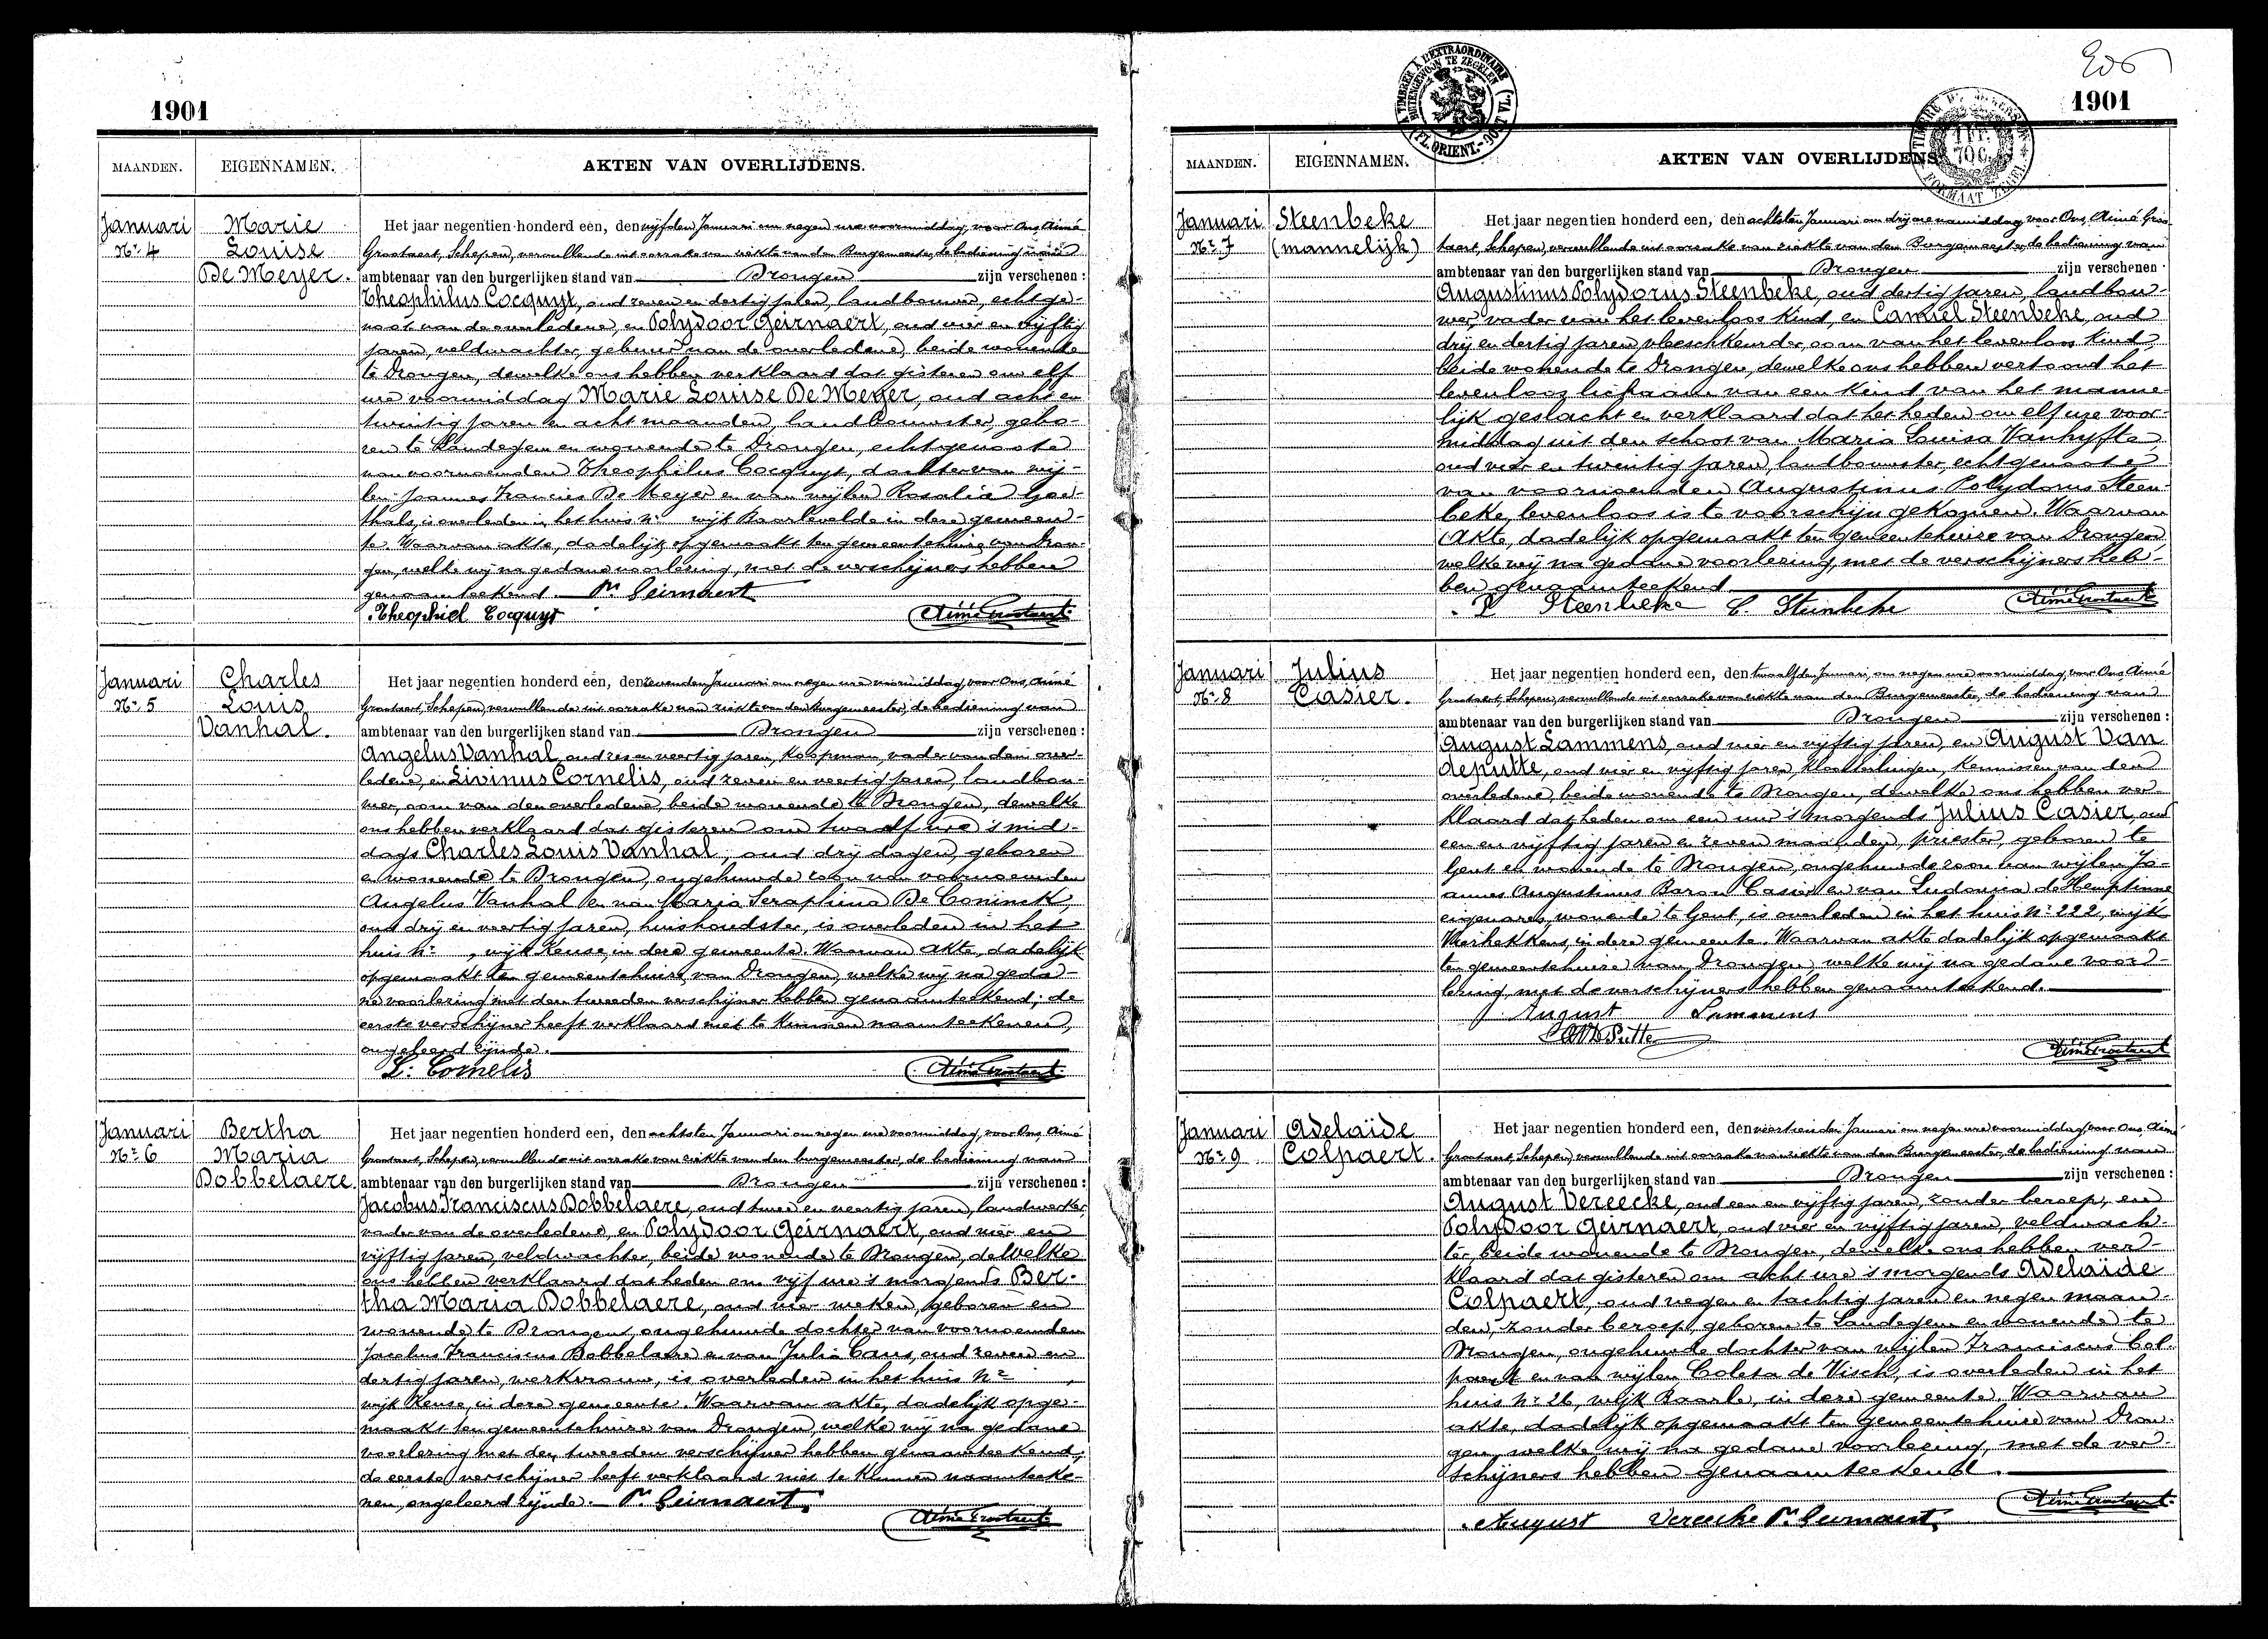 1901
MAANDEN. EIGENNAMEN. AKTEN VAN OVERLIJDENS.
Januari
Nr. 4
Marie
Louise
De Meyer.
Het jaar negentien honderd een, den vijfden Januari om negen ure voormiddag, voor Ons, Aimé
Grootaert, Schepen, vervullende uit oorzake van ziekte van den Burgemeester, de bediening van
ambtenaar van den burgerlijken stand van Drongen zijn verschenen:
Theophilus Cocquyt, oud zeven en dertig jaren, landbouwer, echtge-
noot van de overledene, en Polydoor Geirnaert, oud vier en vijftig
jaren, veldwachter, gebuur van de overledene, beide wonende
te Drongen, dewelke ons hebben verklaard dat gisteren om elf
ure voormiddag Marie Louise De Meyer, oud acht en
twintig jaren en acht maanden, landbouwster, gebo-
ren te Landegem en wonende te Drongen, echtgenoote
van voornoemden Theophilus Cocquyt, dochter van wij-
len Joannes Francies De Meyer en van wijlen Rosalia Goe-
thals, is overleden in het huis Nr. wijk Baarlevelde in deze gemeen-
te. Waarvan akte, dadelijk opgemaakt ten gemeentehuize van Dron-
gen, welke wij na gedane voorlezing, met de verschijners hebben
genaamteekend. Pr. Geirnaert
Theophiel Cocquyt Aimé Grootaert
Januari
Nr. 5
Charles
Louis
Vanhal.
Het jaar negentien honderd een, den zevenden Januari om negen ure voormiddag, voor Ons, Aimé
Grootaert, Schepen, vervullende uit oorzake van ziekte van den burgemeester, de bediening van
ambtenaar van den burgerlijken stand van Drongen zijn verschenen:
Angelus Vanhal, oud zes en veertig jaren, koopman, vader van den over-
ledene, en Livinus Cornelis, oud zeven en veertig jaren, landbou-
wer, oom van den overledene, beide wonende te Drongen, dewelke
ons hebben verklaard dat gisteren om twaalf ure 's mid-
dags Charles Louis Vanhal, oud drij dagen, geboren
en wonende te Drongen, ongehuwde zoon van voornoemden
Angelus Vanhal en van Maria Seraphina De Coninck,
oud drij en veertig jaren, huishoudster, is overleden in het
huis Nr. , wijk Keuze, in deze gemeente. Waarvan akte, dadelijk
opgemaakt ten gemeentehuize van Drongen, welke wij na geda-
ne voorlezing met den tweeden verschijner hebben genaamteekend; de
eerste verschijner heeft verklaard niet te kunnen naamteekenen,
ongeleerd zijnde.
L. Cornelis Aimé Grootaert
Januari
Nr. 6
Bertha
Maria
Dobbelaere.
Het jaar negentien honderd een, den achtsten Januari om negen ure voormiddag, voor Ons, Aimé
Grootaert, Schepen, vervullende uit oorzake van ziekte van den burgemeester, de bediening van
ambtenaar van den burgerlijken stand van Drongen zijn verschenen:
Jacobus Franciscus Dobbelaere, oud twee en veertig jaren, landwerker,
vader van de overledene, en Polydoor Geirnaert, oud vier en
vijftig jaren, veldwachter, beide wonende te Drongen, dewelke
ons hebben verklaard dat heden om vijf ure 's morgends Ber-
tha Maria Dobbelaere, oud vier weken, geboren en
wonende te Drongen, ongehuwde dochter van voornoemden
Jacobus Franciscus Dobbelaere en van Julia Caus, oud zeven en
dertig jaren, werkvrouw, is overleden in het huis Nr. ,
wijk Keuze, in deze gemeente. Waarvan akte, dadelijk opge-
maakt ten gemeentehuize van Drongen, welke wij na gedane
voorlezing met den tweeden verschijner hebben genaamteekend;
de eerste verschijner heeft verklaard niet te kunnen naamteeke-
nen, ongeleerd zijnde. Pr. Geirnaert
Aimé Grootaert
206
1901
TIMBRER A L'EXTRAORDINAIRE
BUITENGEWOON TE ZEGELEN
(FL. ORIENT.-OOST VL.)
MAANDEN. EIGENNAMEN. AKTEN VAN OVERLIJDENS
Januari
Nr. 7
Steenbeke
(mannelijk)
Het jaar negentien honderd een, den achtsten Januari om drij ure namiddag, voor Ons, Aimé Groo-
taert, Schepen, vervullende uit oorzake van ziekte van den Burgemeester, de bediening van
ambtenaar van den burgerlijken stand van Drongen zijn verschenen:
Augustinus Polydorus Steenbeke, oud dertig jaren, landbou-
wer, vader van het levenloos kind, en Camiel Steenbeke, oud
drij en dertig jaren, vleeschkeurder, oom van het levenloos kind,
beide wonende te Drongen, dewelke ons hebben vertoond het
levenloos lichaam van een kind van het manne-
lijk geslacht en verklaard dat het heden om elf ure voor-
middag uit den schoot van Maria Louisa Vanhyfte,
oud vier en twintig jaren, landbouwster, echtgenoote
van voornoemden Augustinus Polydorus Steen-
beke, levenloos is te voorschijn gekomen. Waarvan
Akte, dadelijk opgemaakt ten gemeentehuize van Drongen
welke wij na gedane voorlezing, met de verschijners heb-
ben genaamteekend
P Steenbeke C. Steenbeke Aimé Grootaert
Januari
Nr. 8
Julius
Casier.
Het jaar negentien honderd een, den twaalfden Januari om negen ure voormiddag, voor Ons, Aimé
Grootaert, Schepen, vervullende uit oorzake van ziekte van den Burgemeester, de bediening van
ambtenaar van den burgerlijken stand van Drongen zijn verschenen:
August Lammens, oud vier en vijftig jaren, en August Van
deputte, oud vier en vijftig jaren, kloosterlingen, kennissen van den
overledene, beide wonende te Drongen, dewelke ons hebben ver-
klaard dat heden om een ure 's morgends Julius Casier, oud
een en vijftig jaren en zeven maanden, priester, geboren te
Gent en wonende te Drongen, ongehuwde zoon van wijlen Jo-
annes Augustinus Baron Casier en van Ludovica de Hemptinne
eigenares, wonende te Gent, is overleden in het huis Nr. 222, wijk
Vierhekkens, in deze gemeente. Waarvan akte dadelijk opgemaakt
ten gemeentehuize van Drongen, welke wij na gedane voor-
lezing, met de verschijners hebben genaamteekend.
August Lammens
Aimé Grootaert
Januari
Nr. 9
Adelaïde
Colpaert.
Het jaar negentien honderd een, den veertienden Januari om negen ure voormiddag, voor Ons, Aimé
Grootaert, Schepen, vervullende uit oorzake van ziekte van den Burgemeester, de bediening van
ambtenaar van den burgerlijken stand van Drongen zijn verschenen:
August Vereecke, oud een en vijftig jaren, zonder beroep, en
Polydoor Geirnaert, oud vier en vijftig jaren, veldwach-
ter, beide wonende te Drongen, dewelke ons hebben ver-
klaard dat gisteren om acht ure 's morgends Adelaïde
Colpaert, oud negen en tachtig jaren en negen maan-
den, zonder beroep, geboren te Landegem en wonende te
Drongen, ongehuwde dochter van wijlen Franciscus Col-
paert en van wijlen Coleta de Visch, is overleden in het
huis Nr. 26, wijk Baarle, in deze gemeente. Waarvan
akte, dadelijk opgemaakt ten gemeentehuize van Dron-
gen, welke wij na gedane voorlezing, met de ver-
schijners hebben genaamteekend.
Aimé Grootaert
August Vereecke Pr. Geirnaert